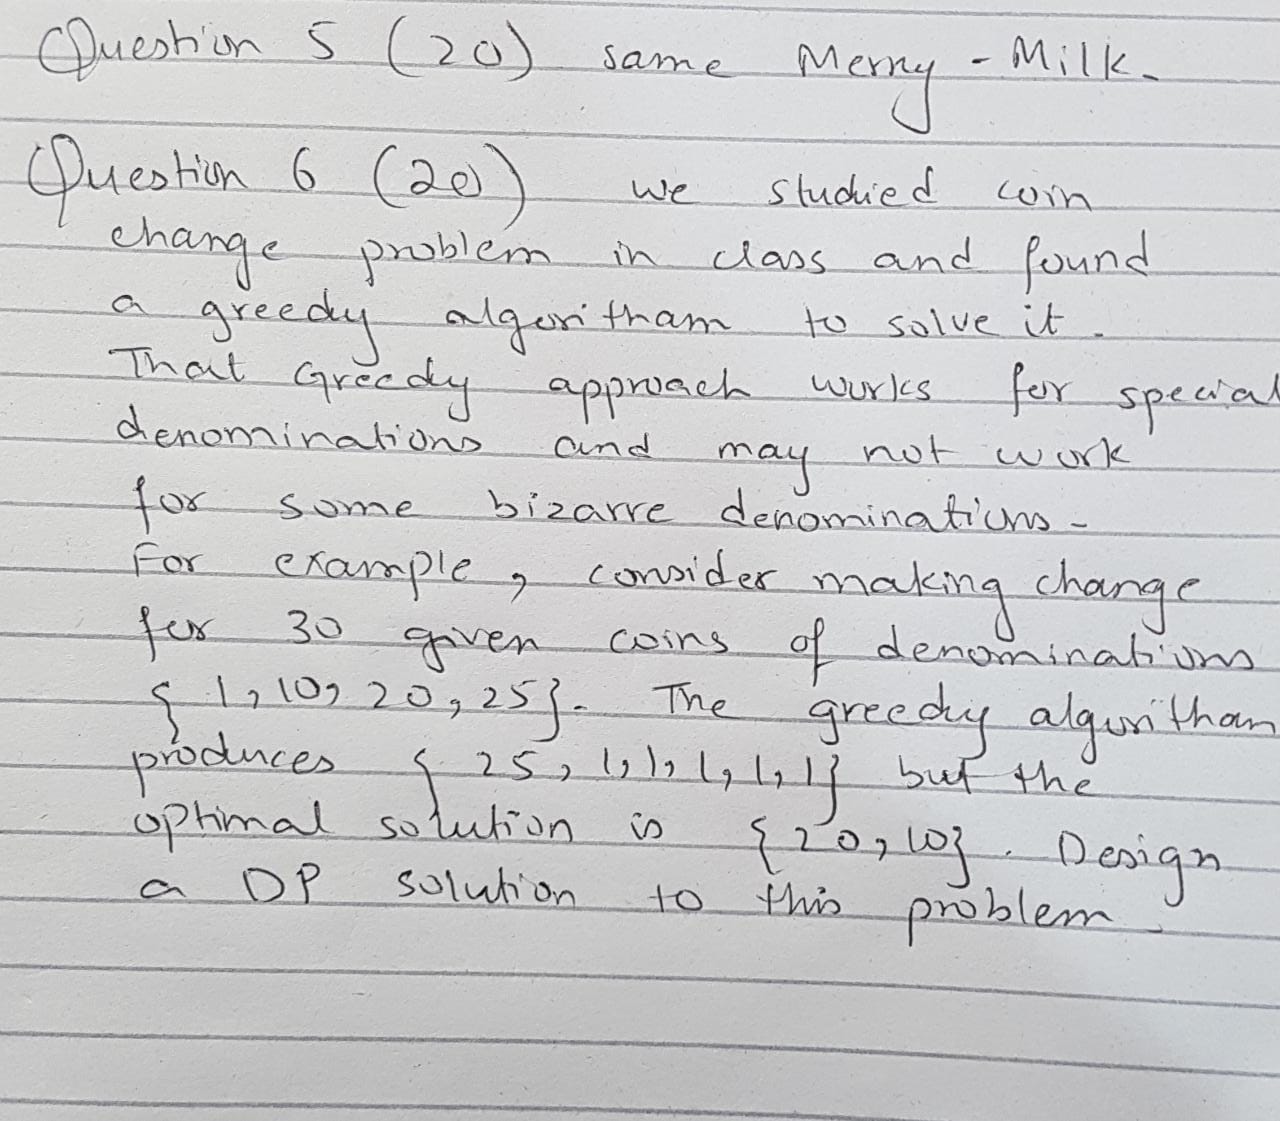 Question 5 (20) same Merry-Milk.
Question 6 (20) we studied coin
change problem in class and found
a greedy algoritham to solve it.
That Greedy approach works for special
denominations and may not work
for some bizarre denominations.
For example, consider making change
for 30 given coins of denominations
{1,10,20,25}. The greedy algoritham
produces {25,1,1,1,1,1} but the
optimal solution is {20,10}. Design
a DP solution to this problem.